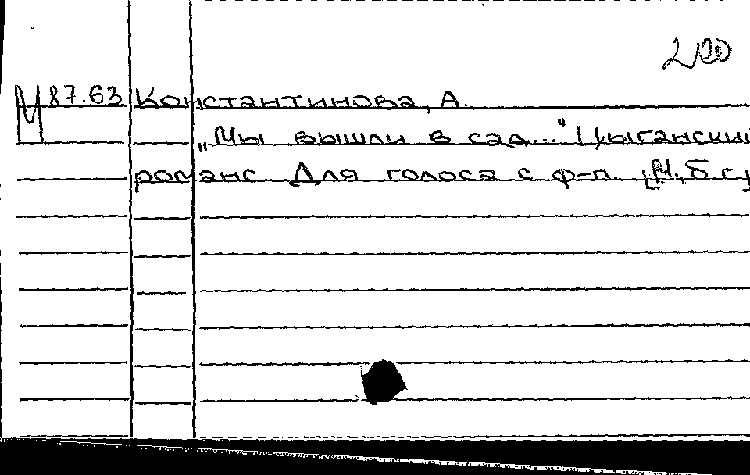 200
М 87.63 Константинова, А.
„Мы вышли в сад..." Цыганский
романс Для голоса с ф-п. [М, б.г.]